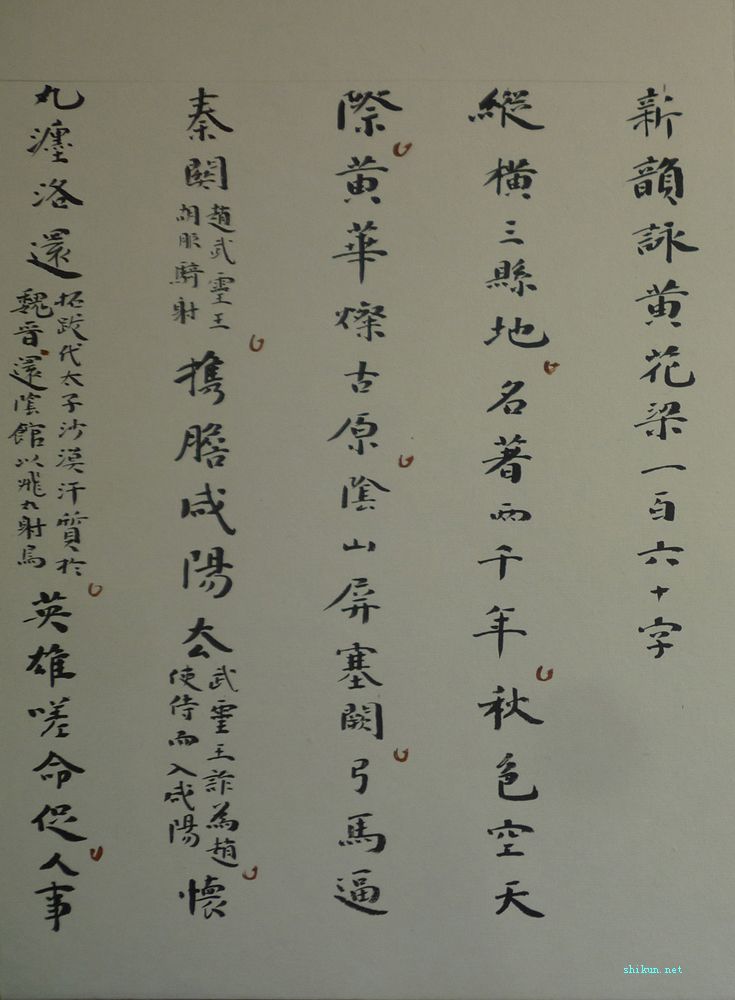 新韻詠黄花梁一百六十字
縱橫三縣地名著兩千年秋色空天
際黄華燦古原陰山屏塞闕弓馬逼
秦關趙武靈王胡服騎射携膽咸陽去武靈王詐為趙使侍而入咸陽懷
丸瀍洛還拓跋代太子沙漠汗質於魏晋還陰館以飛丸射鳥英雄嗟命促人事
shikun.net